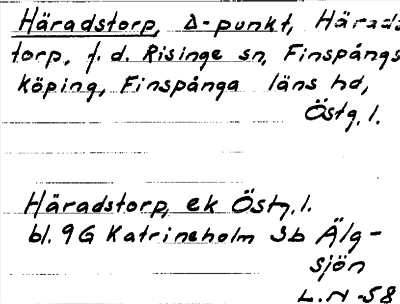 Häradstorp, Δ-punkt, Härads
torp, f.d. Risinge sn, Finspångs
köping, Finspånga läns hd,
Östg.l.
Häradstorp, ek Östg.l.
bl. 9G Katrineholm Sb Älg-
sjön
L.N-58